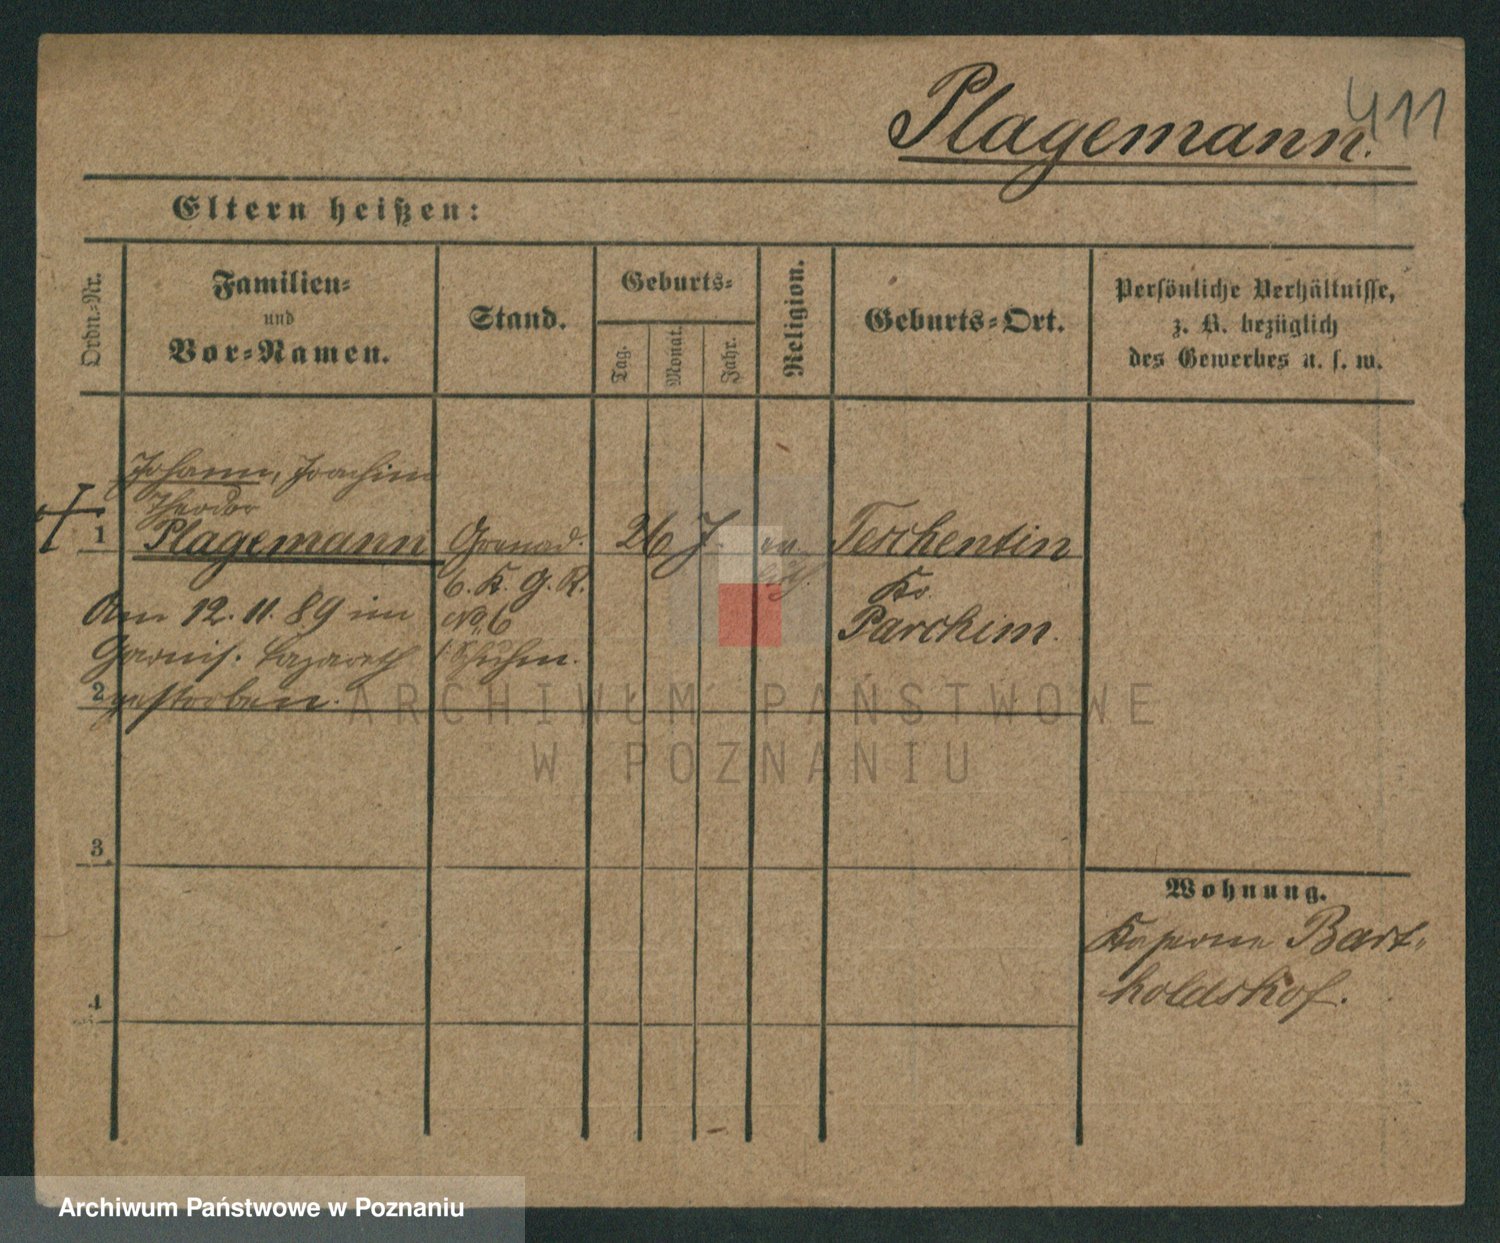 411
Plagemann.
Eltern heißen:
Ordn.-Nr.
Familien-
und
Vor-Namen.
Stand.
Geburts-
Tag.
Monat.
Jahr.
Religion.
Geburts-Ort.
Persönliche Verhältnisse,
z. B. bezüglich
des Gewerbes u. s. w.
Johann, Joachim
Theodor
1 Plagemann Grenad. 26 J. ev. Terchentin
6. K. G. R. Kr.
Am 12. 11. 89 im No 6 Parchim.
Garnis. Lazareth
2 gestorben.
ARCHIWUM PAŃSTWOWE
W POZNANIU
3
Wohnung.
Kaserne Bart-
holdshof.
4
Archiwum Państwowe w Poznaniu